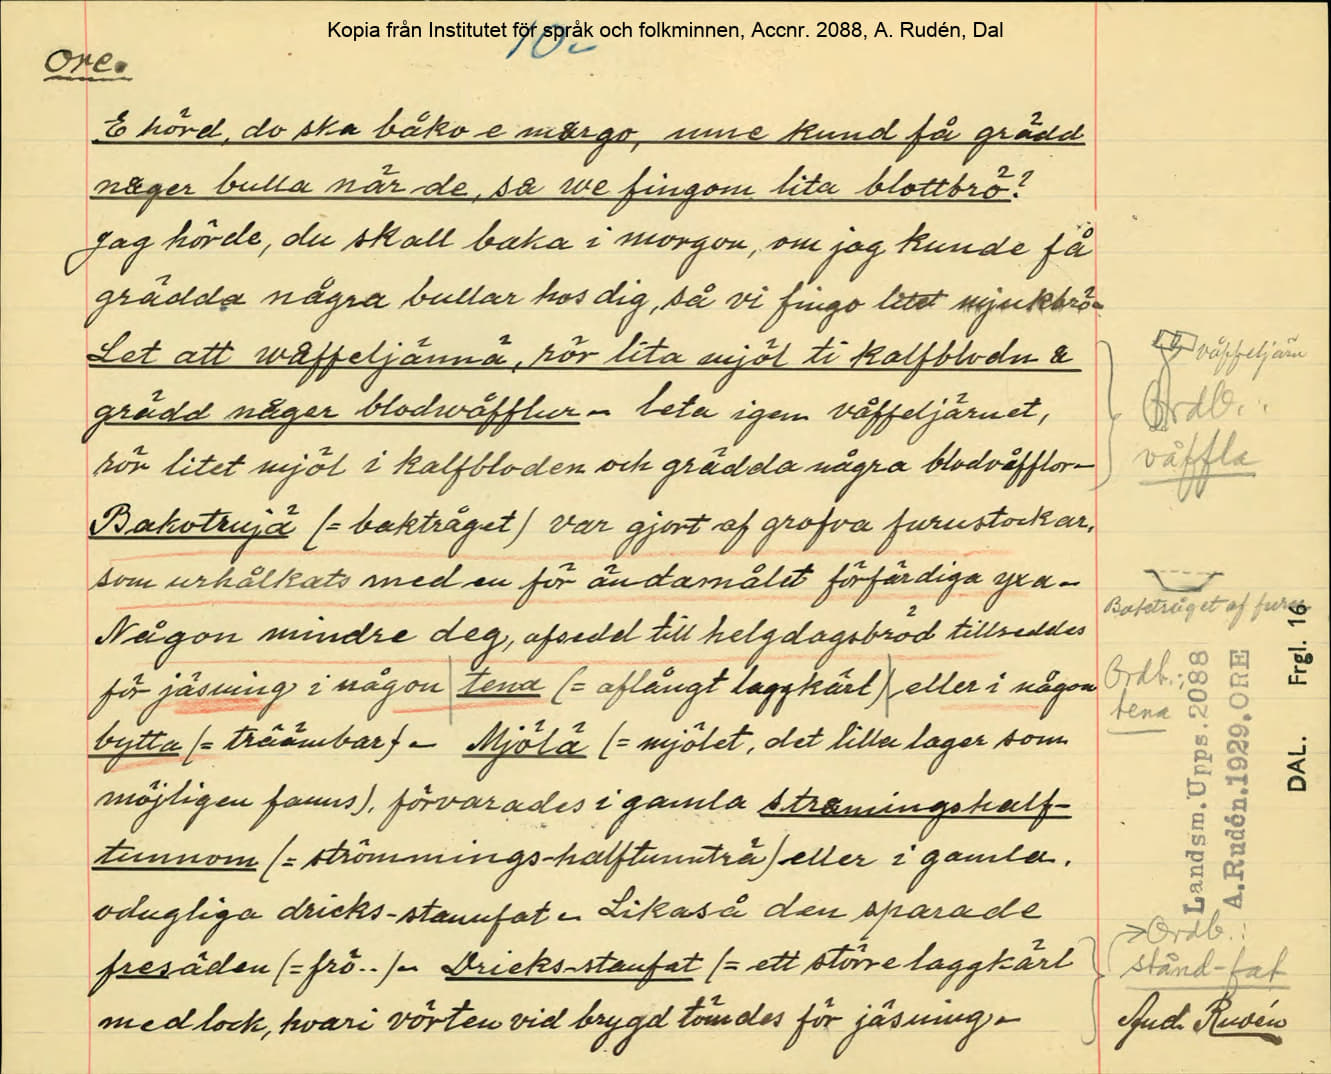 Kopia från Institutet för språk och folkminnen, Accnr. 2088, A. Rudén, Dal
10.
Ore.
E hörd, do ska båko e mårgo, um e kund få grädd
någer bulla når de, så we fingom lita blottbrö?
Jag hörde, du skall baka i morgon, om jag kunde få
grädda några bullar hos dig, så vi fingo litet mjukbrö-
Let att wåffeljännä, rör lita mjöl ti kalfblodn å
grädd någer blodwåfflur - leta igen våffeljärnet,
rör litet mjöl i kalfbloden och grädda några blodvåfflor-
Bakotrujä (= baktråget) var gjort af grofva furustockar,
som urhålkats med en för ändamålet förfärdiga yxa-
Någon mindre deg, afsedd till helgdagsbröd tillreddes
för jäsning i någon tena (= aflångt laggkärl) eller i någon
bytta (= träämbar) - Mjölä (= mjölet, det lilla lager som
möjligen fanns), förvarades i gamla strämingshalf-
tunnom (= strömmings-halftunnträ) eller i gamla,
odugliga dricks-stannfat - Likaså den sparade
fresäden (= frö..)- Dricks-stanfat (= ett större laggkärl
med lock, hvari vörten vid brygd tömdes för jäsning-
våffeljärn
Ordb.:
våffla
Baktråget af furu
Ordb.:
tena
Landsm. Upps. 2088
A. Rudén. 1929. ORE
DAL. Frgl. 16
Ordb.:
stånd-fat
And. Rudén